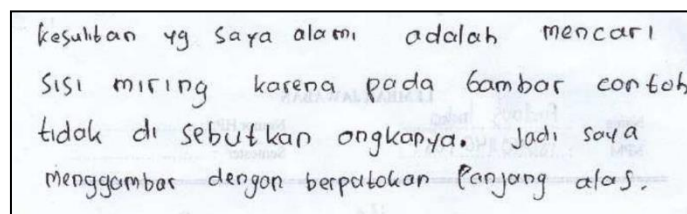 kesulitan yg saya alami adalah mencari
sisi miring karena pada Gambar contoh
tidak di sebutkan angkanya. Jadi saya
menggambar dengan berpatokan Panjang alas.
LEMBAR JAWABAN